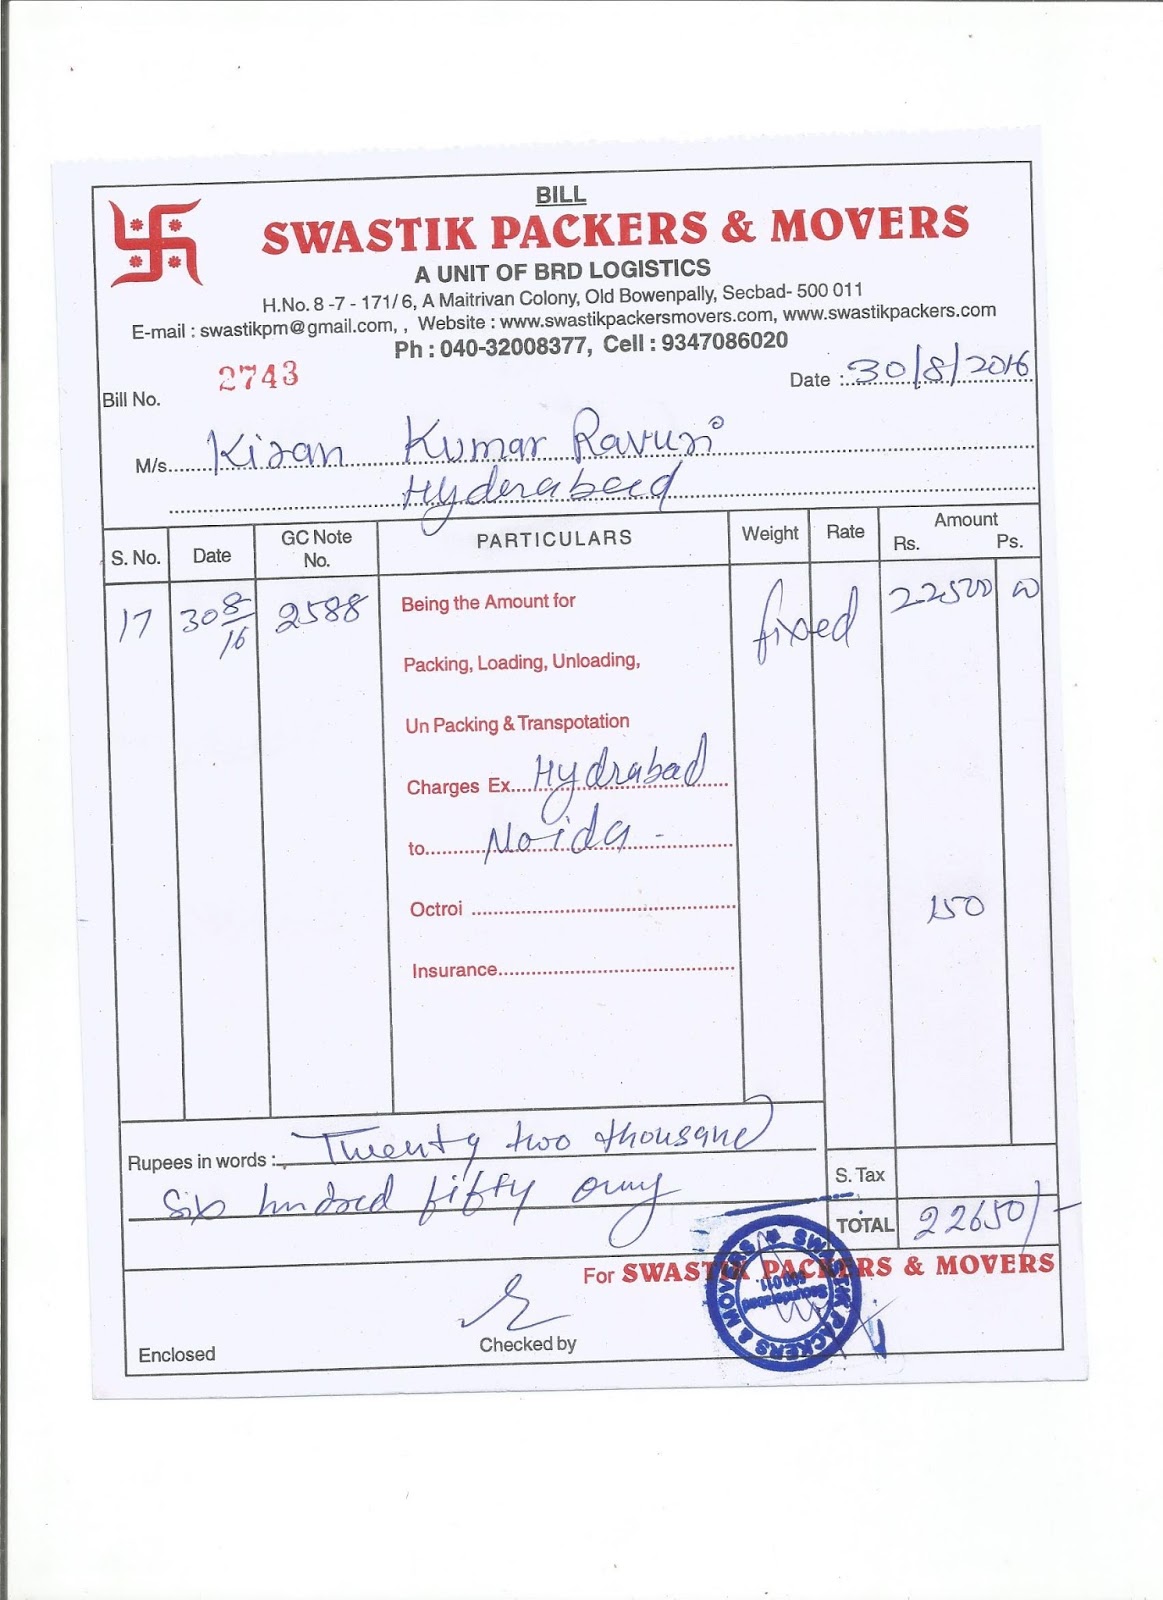 BILL
SWASTIK PACKERS & MOVERS
A UNIT OF BRD LOGISTICS
H.No. 8 -7 - 171/ 6, A Maitrivan Colony, Old Bowenpally, Secbad- 500 011
E-mail : swastikpm@gmail.com, , Website : www.swastikpackersmovers.com, www.swastikpackers.com
Ph : 040-32008377, Cell : 9347086020
Bill No. 2743 Date : 30/8/2016
M/s. Kiran Kumar Ravuri
Hyderabad
S. No. Date GC Note No. PARTICULARS Weight Rate Amount Rs. Ps.
17 30 8/16 2588 Being the Amount for fixed 22500 00
Packing, Loading, Unloading,
Un Packing & Transpotation
Charges Ex. Hydrabad
to Noida -
Octroi 150
Insurance
Rupees in words : Twenty two thousand
Six hundred fifty only
S. Tax
TOTAL 22650/-
For SWASTIK PACKERS & MOVERS
SWASTIK PACKERS & MOVERS ★
Secunderabad
500 011.
Enclosed Checked by